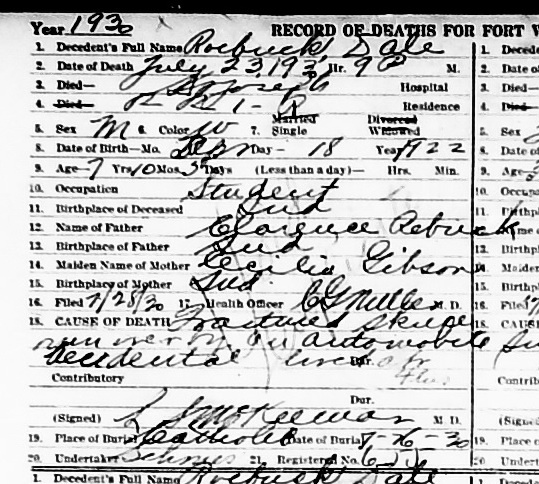 Year 1930 RECORD OF DEATHS FOR FORT W
1. Decedent's Full Name Roebuck, Dale
2. Date of Death July 23, 193 Hr. 9 P M.
3. Died— St Joseph Hospital
4. Died— R R 1 - Residence
5. Sex M 6. Color W 7. Married Single Divorced Widowed
8. Date of Birth—Mo. Day— 18 Year 1922
9. Age— 7 Yrs 10 Mos. 5 Days (Less than a day)— Hrs. Min.
10. Occupation Student
11. Birthplace of Deceased Ind
12. Name of Father Clarence Rebuck
13. Birthplace of Father Ind
14. Maiden Name of Mother Cecilia Gibson
15. Birthplace of Mother Ind.
16. Filed 7/28/30 17. Health Officer M. D.
18. CAUSE OF DEATH Fractured skull
run over by an automobile
accidental Dur.
Contributory
Dur.
(Signed) McKeeman M. D.
19. Place of Burial Catholic Date of Burial 7-26-30
20. Undertaker 21. Registered No.
1. Decedent's Full Name Roebuck Dale
1. Decede
2. Date of
3. Died—
4. Died—
5. Sex
8. Date of
9. Age
10. Occupa
11. Birthpl
13. Birthpl
14. Maiden
15. Birthpl
16. Filed
18. CAUS
Contrib
(Signed
19. Place o
20. Undert
1. Decede